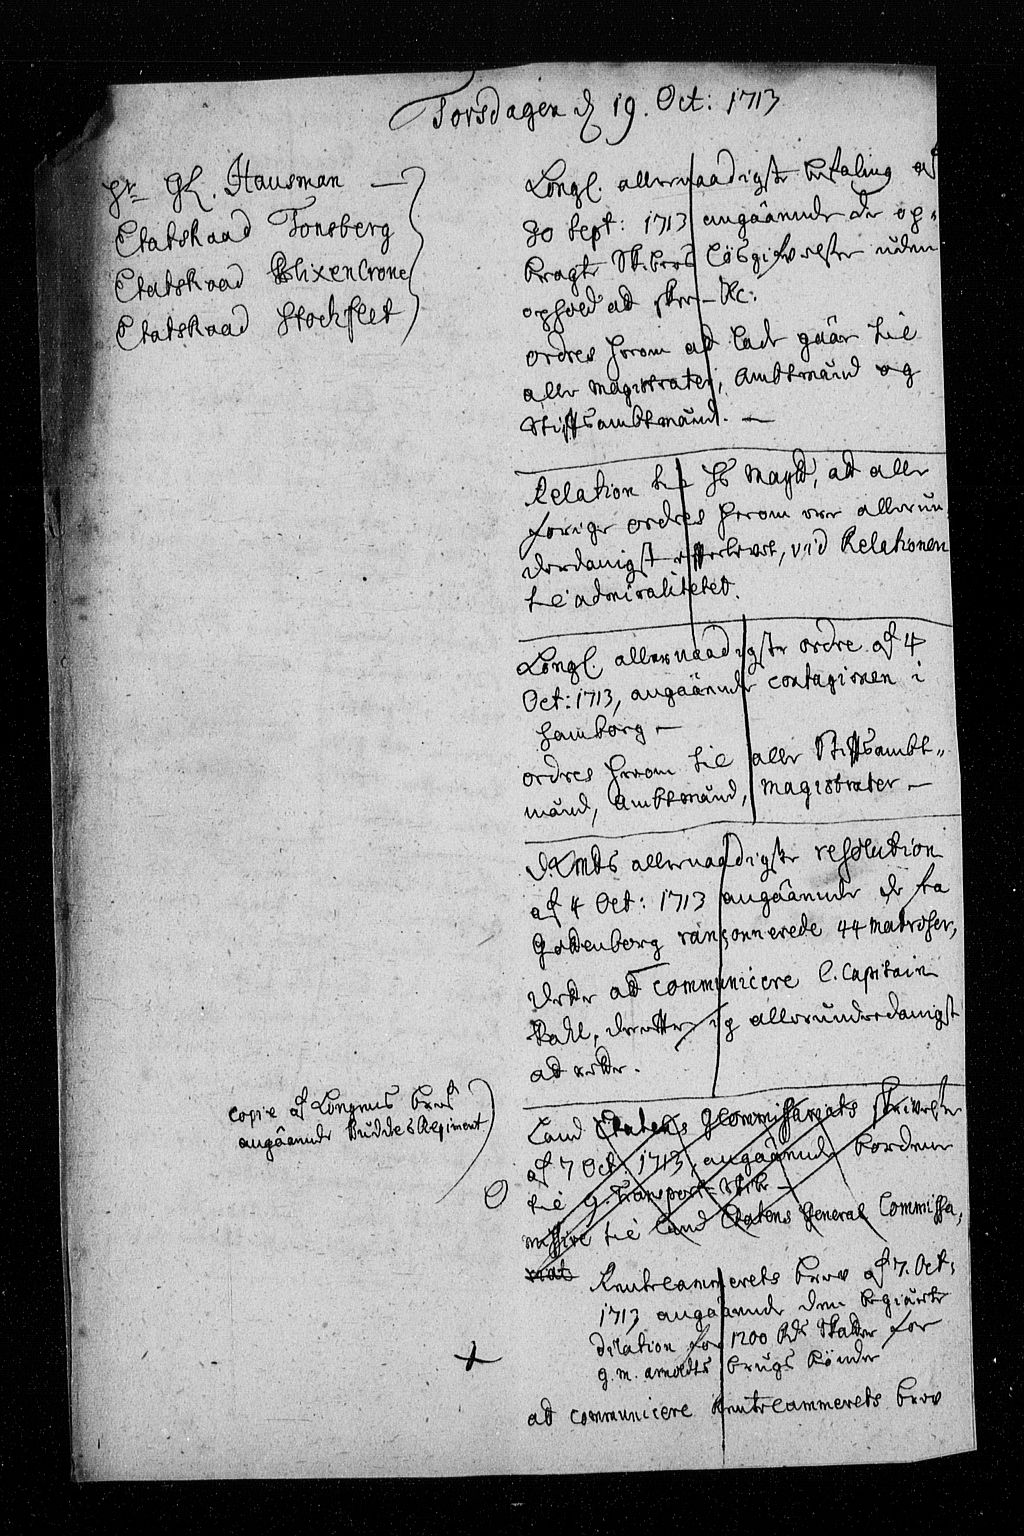 Torsdagen d 19. Oct: 1713
Hr GL. Hausman —
Etatsraad Tonsberg
Etatsraad Blixencrone
Etatsraad Stockflet
Kongl. allernaadigste befaling af
30 Sept: 1713 angaaende de op-
bragte Skibers Løsgifvelse uden
ophold ad skee — &c:
ordres herom ad lade gaar til
alle magistrater, Ambtmænd og
Stiftsambtmænd. —
Relation til Hs Mayst, ad alle
forige ordres herom ere allerun
derdanigst efterlevet, ved Relationen
til admiralitetet.
Kongl. allernaadigste ordre af 4
Oct: 1713, angaaende contagionen i
Hamborg —
ordres herom til alle Stiftsambt-
mænd, Ambtmænd, magistrater —
allernaadigste resolution
af 4 Oct: 1713 angaaende de fra
Gottenborg rançonnerede 44 matroser,
dette ad communicere C. Capitain
Rahl, derefter sig allerunderdanigst
ad rette.
copie af Kongens brev
angaaende Buddes Regiment
Land Etatens gCommissariats skrivelse
af 7 Oct: 1713, angaaende
til g. Transport Skibe —
missive til Land Etatens General Commissa,
riat
Rentecammerets brev af 7. Oct:
1713 angaaende den begiærte
dilation for 1200 Rdr Skatter for
g. m. arnoldts brugs bønder
ad communicere Rentecammerets brev